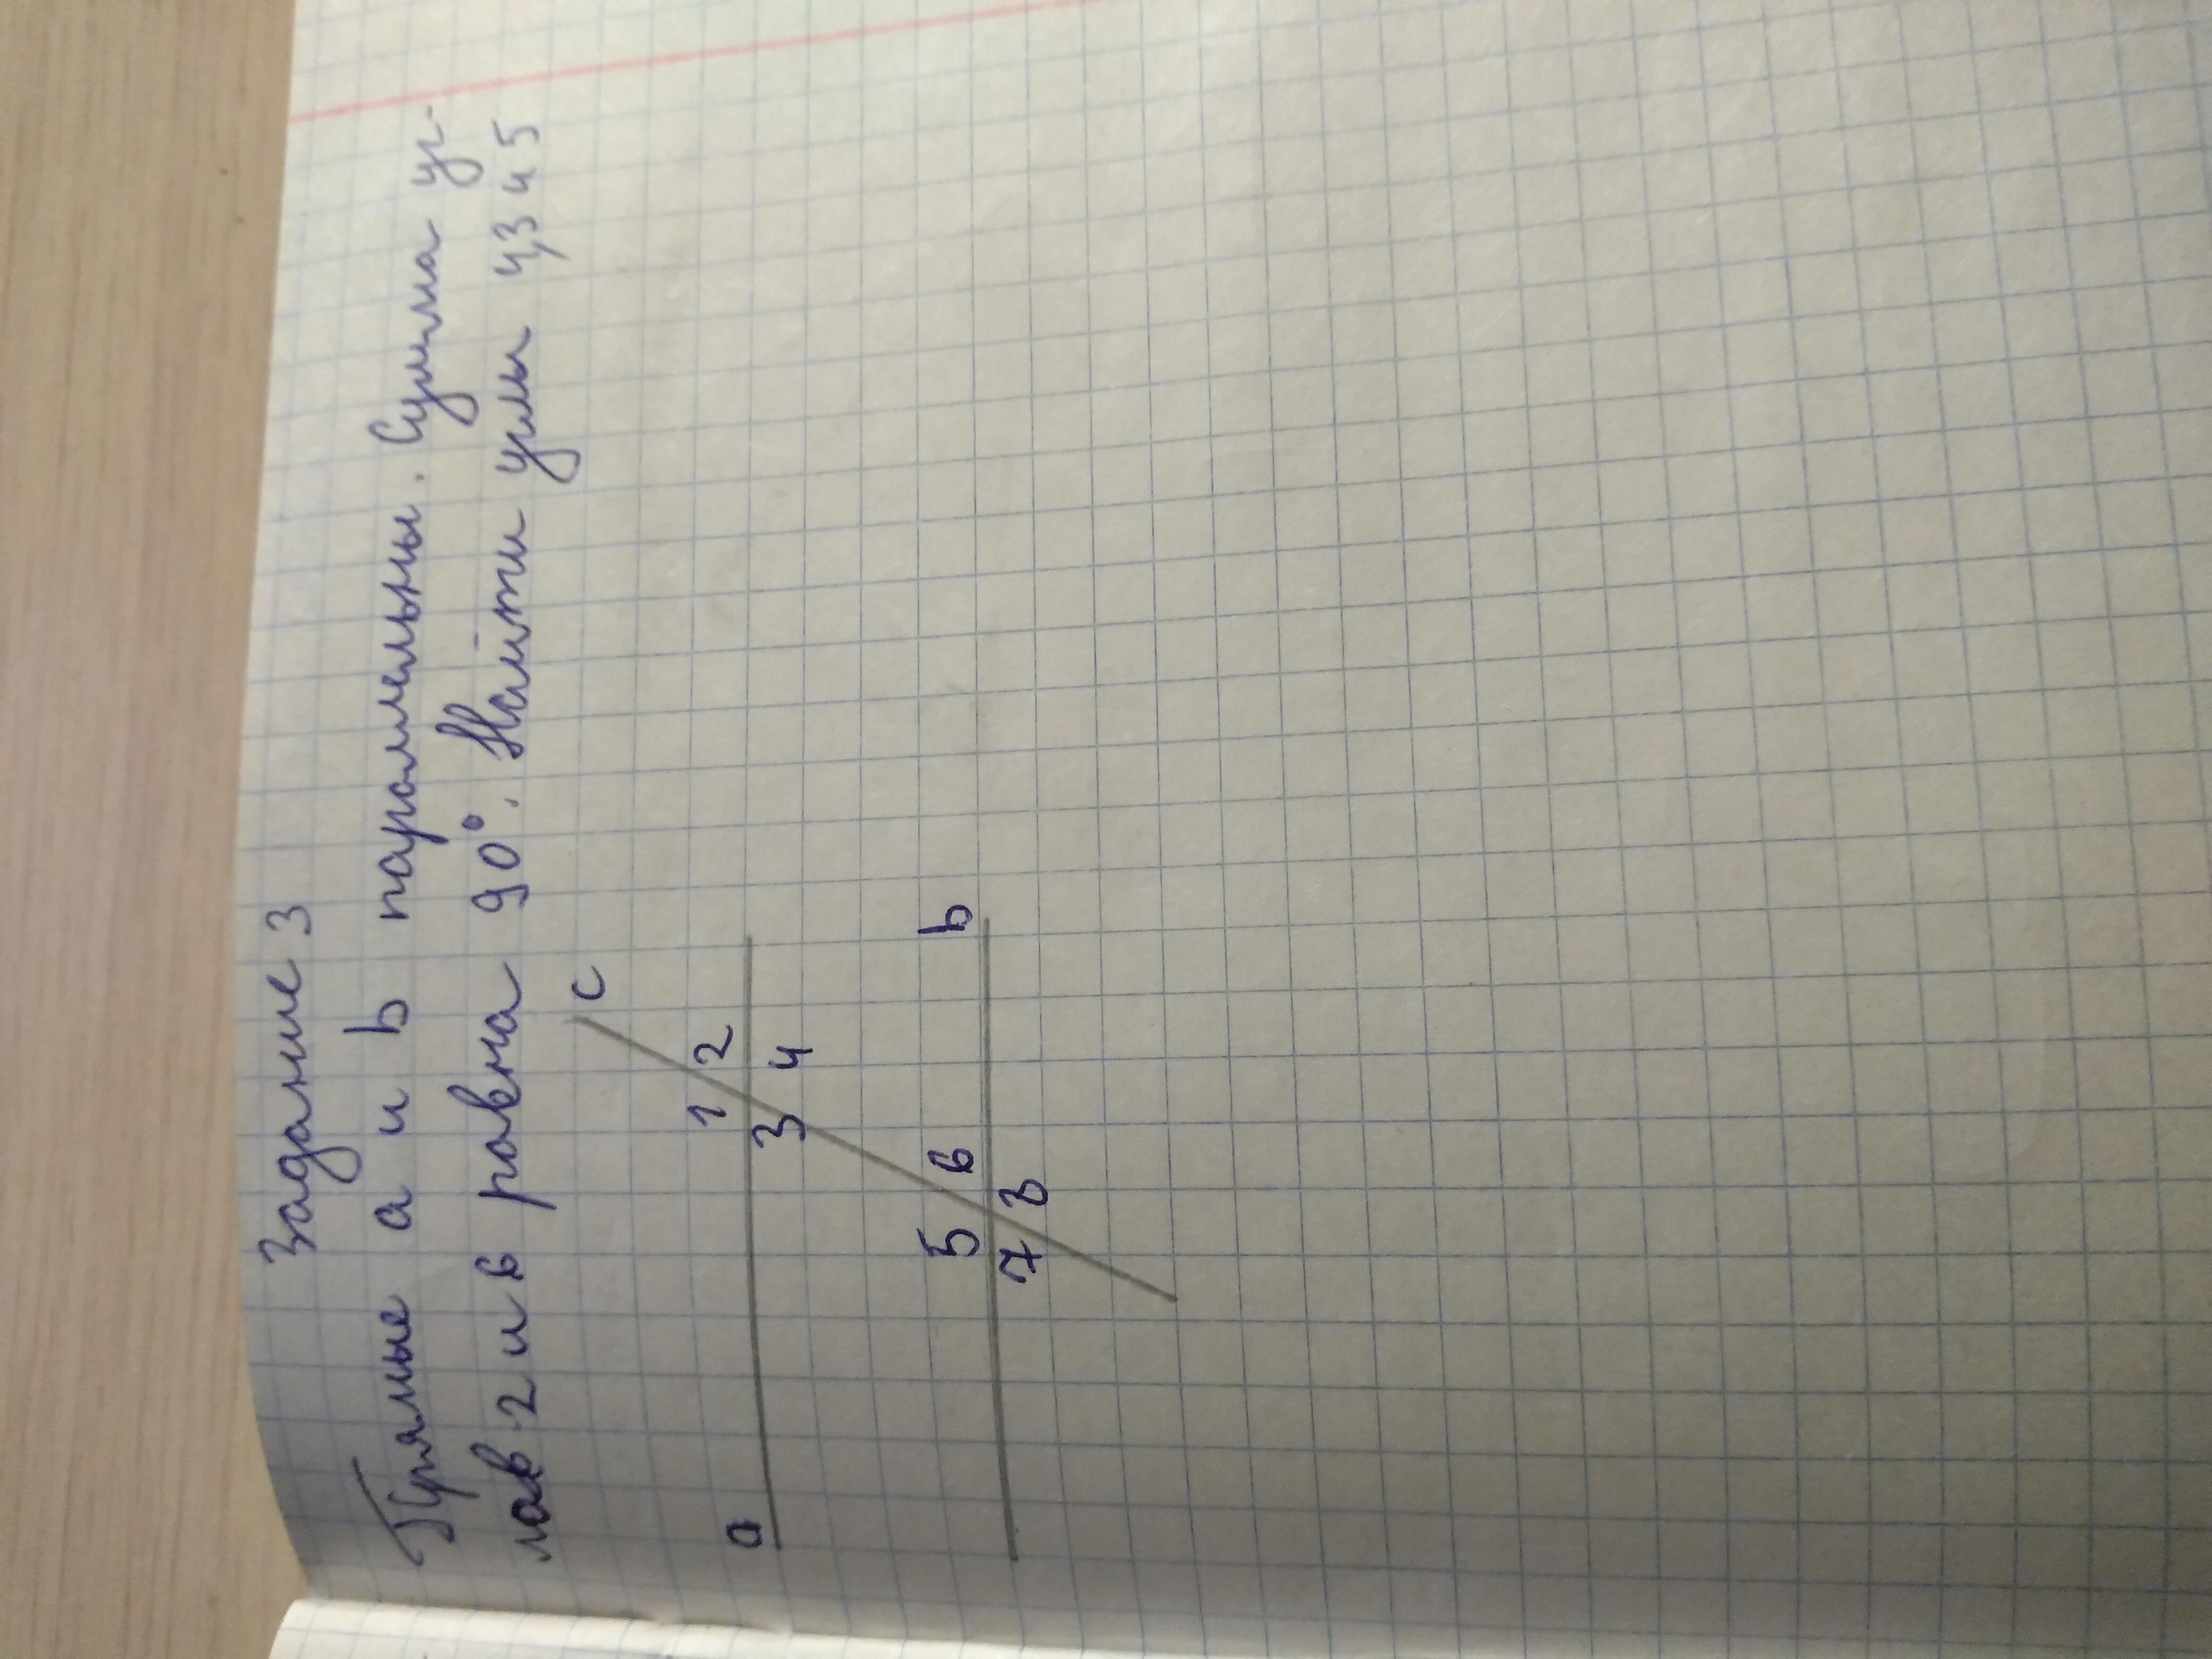 Задание 3
Прямые a и b паралельны. Сумма уг-
лов 2 и 6 равна 90°. Найти углы 4,3 и 5
c
1 2
a
3 4
5 6 b
7 8